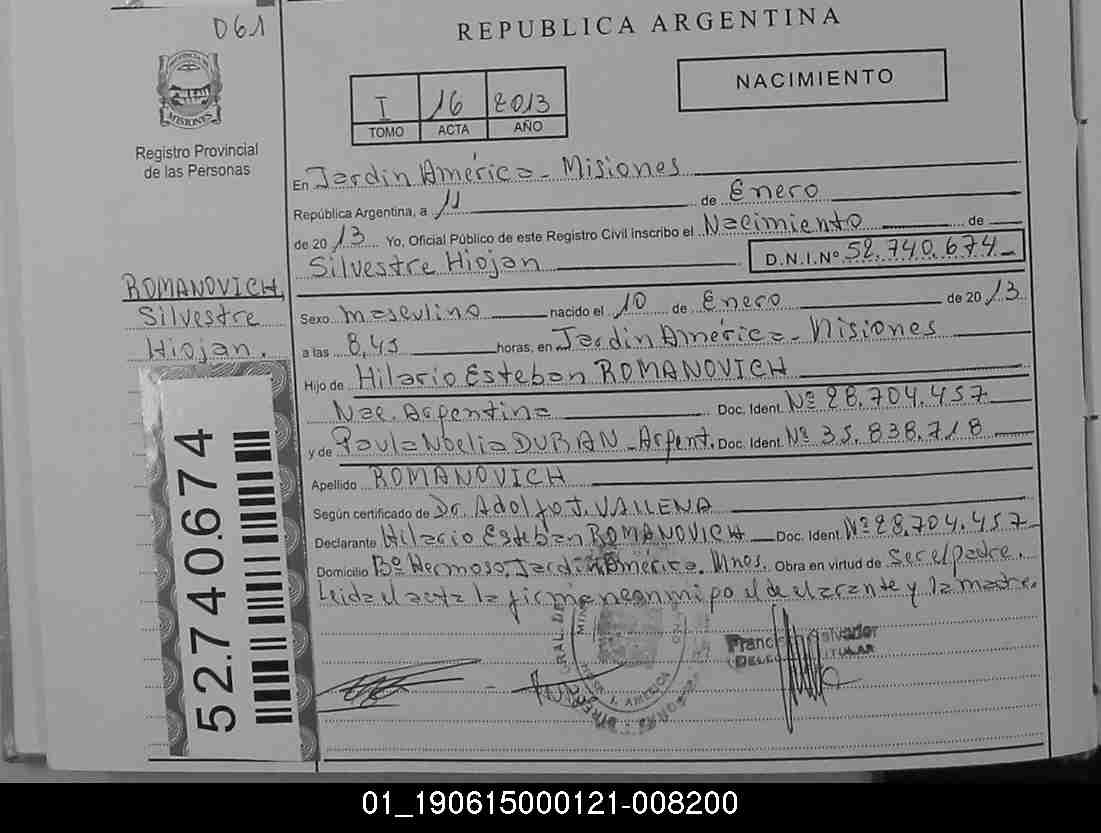 061
REPUBLICA ARGENTINA
NACIMIENTO
I 16 2013
TOMO ACTA AÑO
Registro Provincial
de las Personas
En Jardin América - Misiones
República Argentina, a 11 de Enero
de 2013 Yo, Oficial Público de este Registro Civil inscribo el Nacimiento de
Silvestre Hiojan D.N.I.Nº 52.740.674
ROMANOVICH,
Silvestre
Hiojan.
Sexo masculino nacido el 10 de Enero de 2013
a las 8,45 horas, en Jardin América - Misiones
Hijo de Hilario Esteban ROMANOVICH
Nac. Argentina Doc. Ident. Nº 28.704.457
y de Paula Noelia DURAN - Argent. Doc. Ident. Nº 35.838.718
Apellido ROMANOVICH
Según certificado de Dr. Adolfo J. VALLENA
Declarante Hilario Esteban ROMANOVICH Doc. Ident. Nº 28,704.457
Domicilio Bº Hermoso, Jardin América. Mnes. Obra en virtud de Ser el padre.
Leida el acta la firman conmigo el declarante y la madre.
52.740.674
TITULAR
01_190615000121-008200